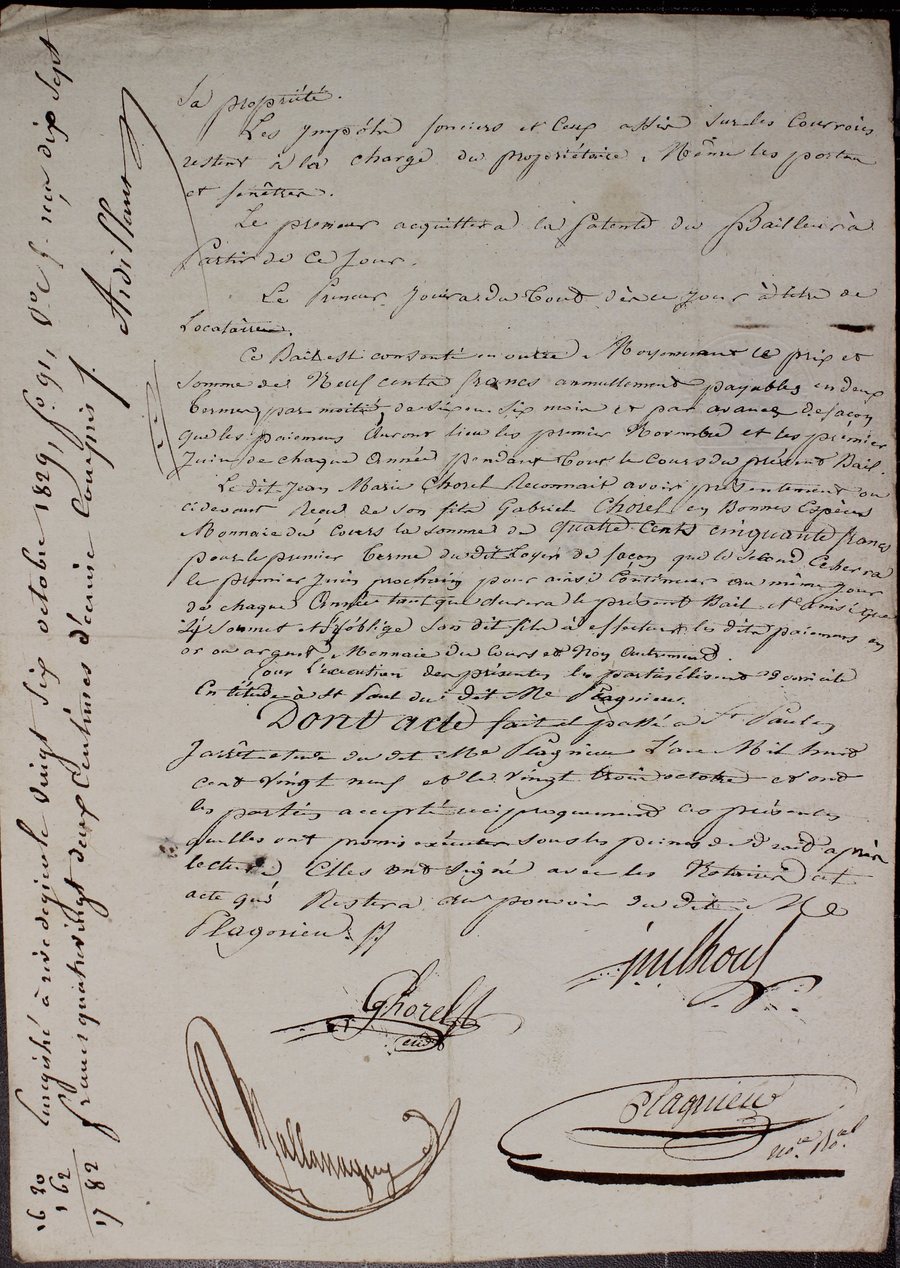 Sa propriété.
Les ympôts fonciers et Ceux assis Sur les Courroies
restent à la charge du propriétaire, Même les portes
et fenêtres.
Le preneur acquittera la Patente du Bailleur à
Partir de Ce Jour.
Le Preneur Jouira du Tout dès ce Jour à titre de
Locataire.
Ce Bail est consenti en outre Moyennant le prix et
Somme de Neuf cents francs annuellement payables en deux
termes, par moitié, de Six en Six mois et par avance de façon
que les paiemens auront lieu les premier Novembre et les premier
Juin de chaque Année pendant tout le Cours du présent Bail.
Le dit Jean Marie Chorel Reconnait avoir présentement ou
cidevant Reçu de son fils Gabriel Chorel en Bonnes Espèces
Monnaie du Cours la Somme de quatre Cents cinquante francs
pour le premier terme du dit Loyer de façon que le Second Echerra
le premier Juin prochain pour ainsi Continuer au même jour
de chaque Année tant que durera le présent Bail
et s'oblige Son dit fils à effectuer les dits paiemens en
or ou argent, Monnaie du Cours et Non Autrement.
Pour L'exécution des présentes les parties élisent Domicile
En l'étude à St Paul du dit Me Plagnieu.
Dont acte fait et passé à St Paul en
Jarrêt etude du dit Me Plagnieu L'an Mil huit
cent vingt neuf et le vingt trois octobre et ont
les parties accepté réciproquement ces présentes
quelles ont promis exécuter sous les peines de droit après
lecture Elles ont Signé avec les Notaires cet
acte qui Restera au pouvoir du dit Me
Plagnieu
Chorel
Plagnieu
nore. Roal
Enregistré à rive de gier le Vingt Six octobre 1829, fo. 91, Vo. reçu dix Sept
francs quatre vingt deux Centimes décime Compris
16 20
1 62
17 82